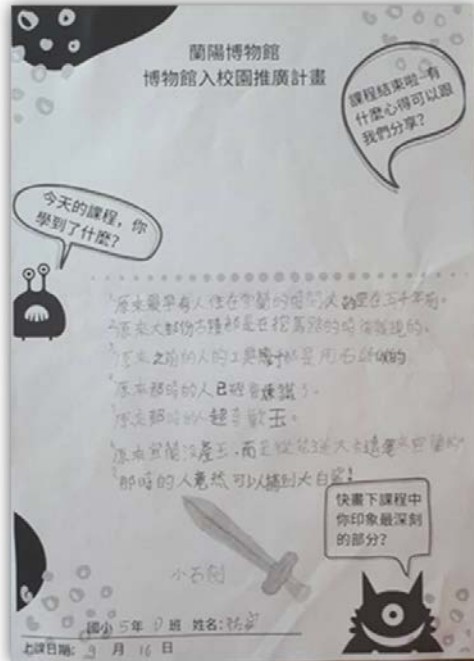 蘭陽博物館
博物館入校園推廣計畫
課程結束啦~有
什麼心得可以跟
我們分享?
今天的課程,你
學到了什麼?
1.原來最早有人住在宜蘭的時間大約是在五千年前。
2.原來大部份古蹟都是在挖馬路的時候發現的。
3.原來之前的人的工具幾乎都是用石頭做的
4.原來那時的人已經會煉鐵了。
5.原來那時的人超喜歡玉。
6.原來宜蘭沒產玉,而是從花蓮大老遠運來宜蘭的
7.那時的人竟然可以捕到大白鯊!
快畫下課程中
你印象最深刻
的部分?
小石劍
國小 5年 班 姓名:
上課日期: 9 月 16 日